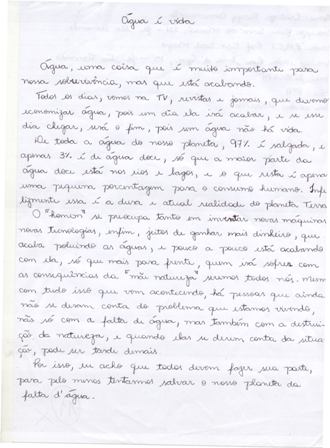 Água é vida
Água, uma coisa que é muito importante para
nossa sobrevivência, mas que está acabando.
Todos os dias, vemos na TV, revistas e jornais, que devemos
economizar água, pois um dia ela irá acabar, e se esse
dia chegar, será o fim, pois sem água não há vida.
De toda a água do nosso planeta, 97% é salgada, e
apenas 3% é de água doce, só que a maior parte da
água doce está nos rios e lagos, e o que resta é apenas
uma pequena porcentagem para o consumo humano. Infe
lizmente essa é a dura e atual realidade do planeta Terra
O "homem" se preocupa tanto em inventar novas máquinas
novas tecnologias, enfim, jeitos de ganhar mais dinheiro, que
acaba poluindo as águas, e pouco a pouco está acabando
com ela, só que mais para frente, quem irá sofrer com
as consequências da "mãe natureza" seremos todos nós. Mesmo
com tudo isso que vem acontecendo, há pessoas que ainda
não se deram conta do problema que estamos vivendo,
não só com a falta de água, mas também com a destrui
ção da natureza, e quando elas se derem conta da situa
ção, pode ser tarde demais.
Por isso, eu acho que todos devem fazer sua parte,
para pelo menos tentarmos salvar o nosso planeta da
falta d'água.